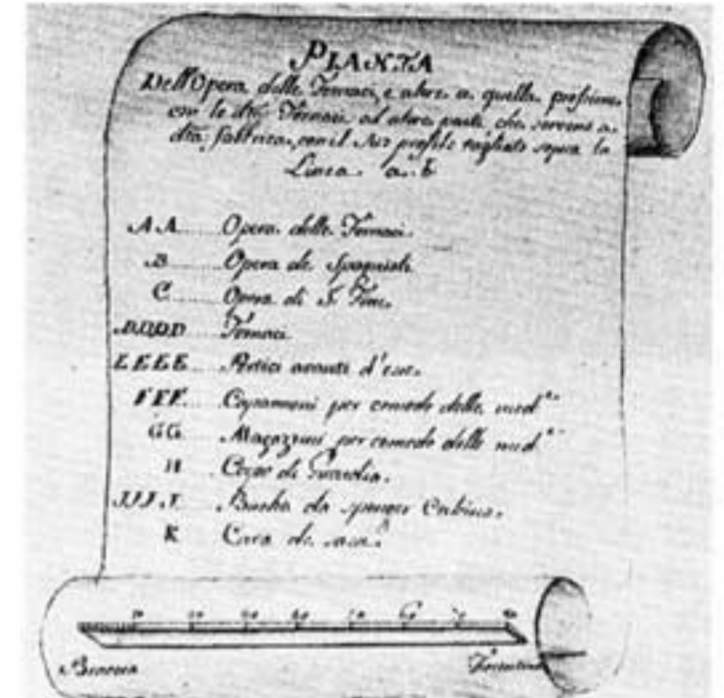 PIANTA
Dell'Opera delle Fornaci, e altre a quella prossime
con le dte Fornaci ed altre parti che servono a
dta fabbrica, con il suo profilo tagliato sopra la
Linea a. b
AA Opera delle Fornaci.
B Opera de Spagnioli
C Opera di S.
DDDD Fornaci
EEEE Portici avanti d'esse.
FFF Capannoni per comodo delle med.e
GG Magazzini per comodo delle med.e
H Corpo di Guardia.
IIII Buche da spenger Calcina.
K Cava de
10 20 30 40 50 60 70 80
Braccia Fiorentine